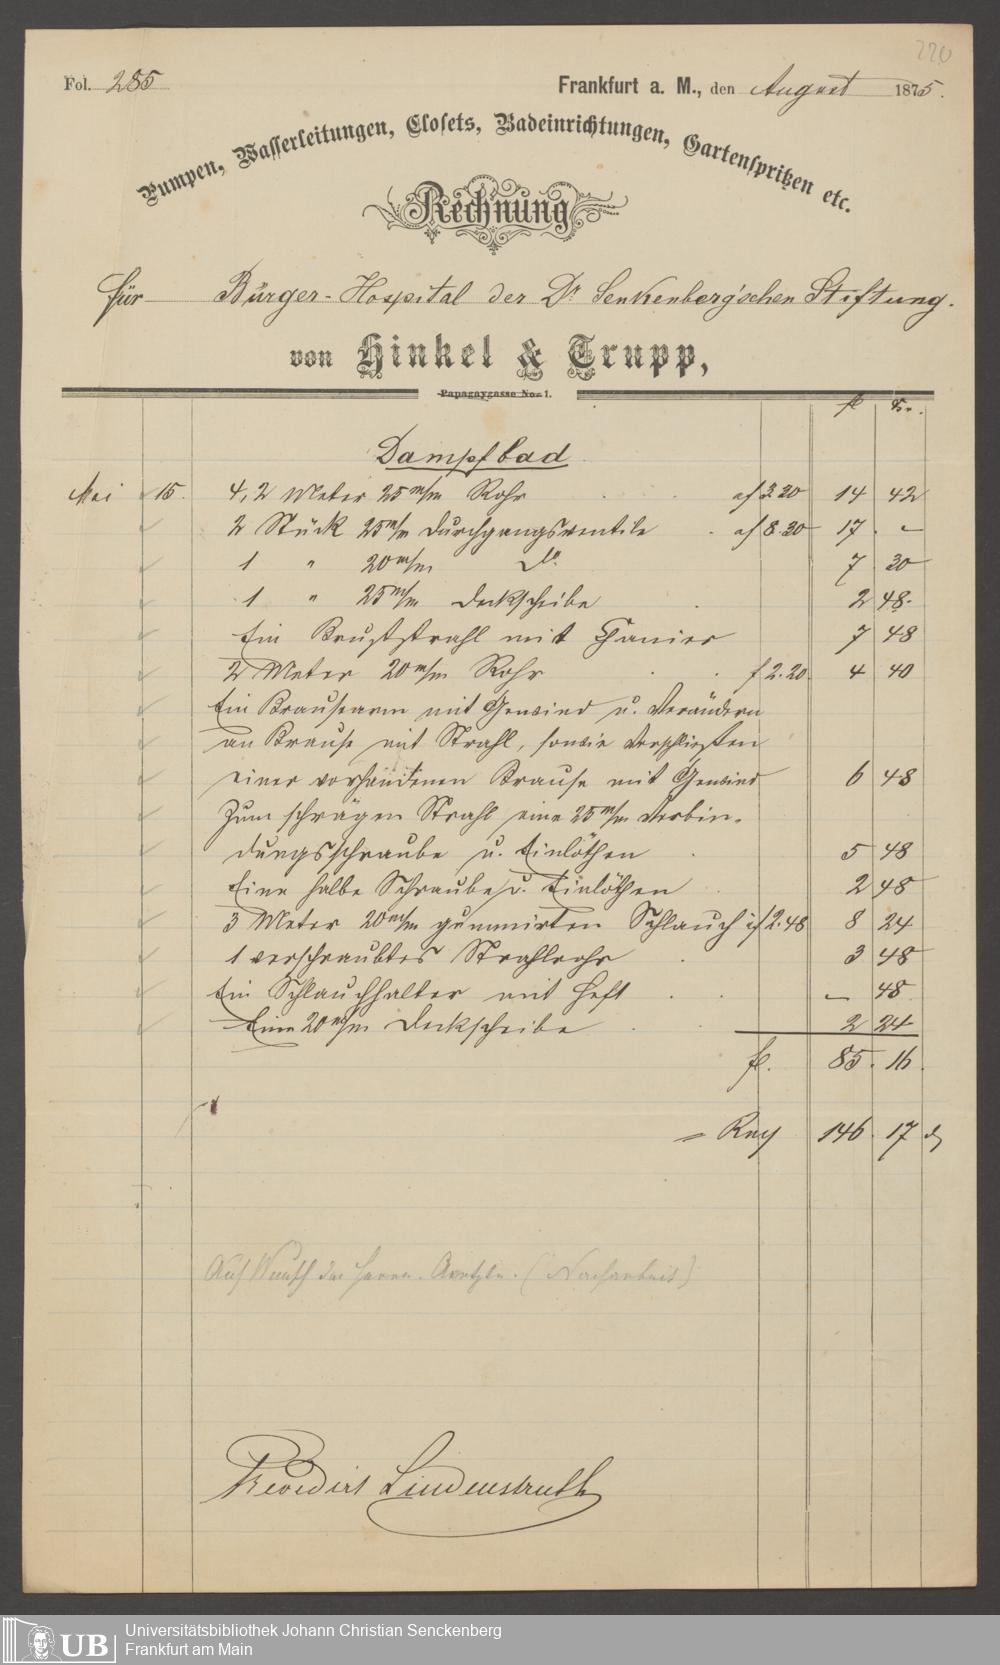 220
Fol. 285 Frankfurt a. M., den August 1875.
Pumpen, Wasserleitungen, Closets, Badeinrichtungen, Gartenspritzen etc.
Rechnung
für Bürger-Hospital der Dr Senkenberg'schen Stiftung.
von Hinkel & Trupp,
Papagaygasse No. 1.
fl Kr.
Dampfbad
Mai 15. 4,2 Meter 25 m/m Rohr af 3.20 14 42
2 Stück 25 m/m Durchgangsventile af 8.30 17 . –
1 " 20 m/m Do. 7 30
1 " 25 m/m Deckscheibe 2 48.
Ein Brustrahl mit 7 48
2 Meter 20 m/m Rohr f 2.20 4 40
Ein Brausearm mit Gewind u. Verändern
an Brause mit Strahl, sowie Verschließen
einer vorhandenen Brause mit Gewind 6 48
Zum schrägen Strahl eine 25 m/m Verbin-
dungsschraube u. Einlöthen 5 48
Eine halbe Schraube u. Einlöthen 2 48
3 Meter 20 m/m gummirten Schlauch f 2.48 8 24
1 verschraubtes Strahlrohr 3 48
Ein Schlauchhalter mit Heft – 48
Eine 20 m/m Deckscheibe 2 24
fl. 85. 16.
= Rm 146. 17 d
Auf Wunsch der Herren Aerzte. (Nacharbeit)
Revidirt Lindenstruth
UB
Universitätsbibliothek Johann Christian Senckenberg
Frankfurt am Main